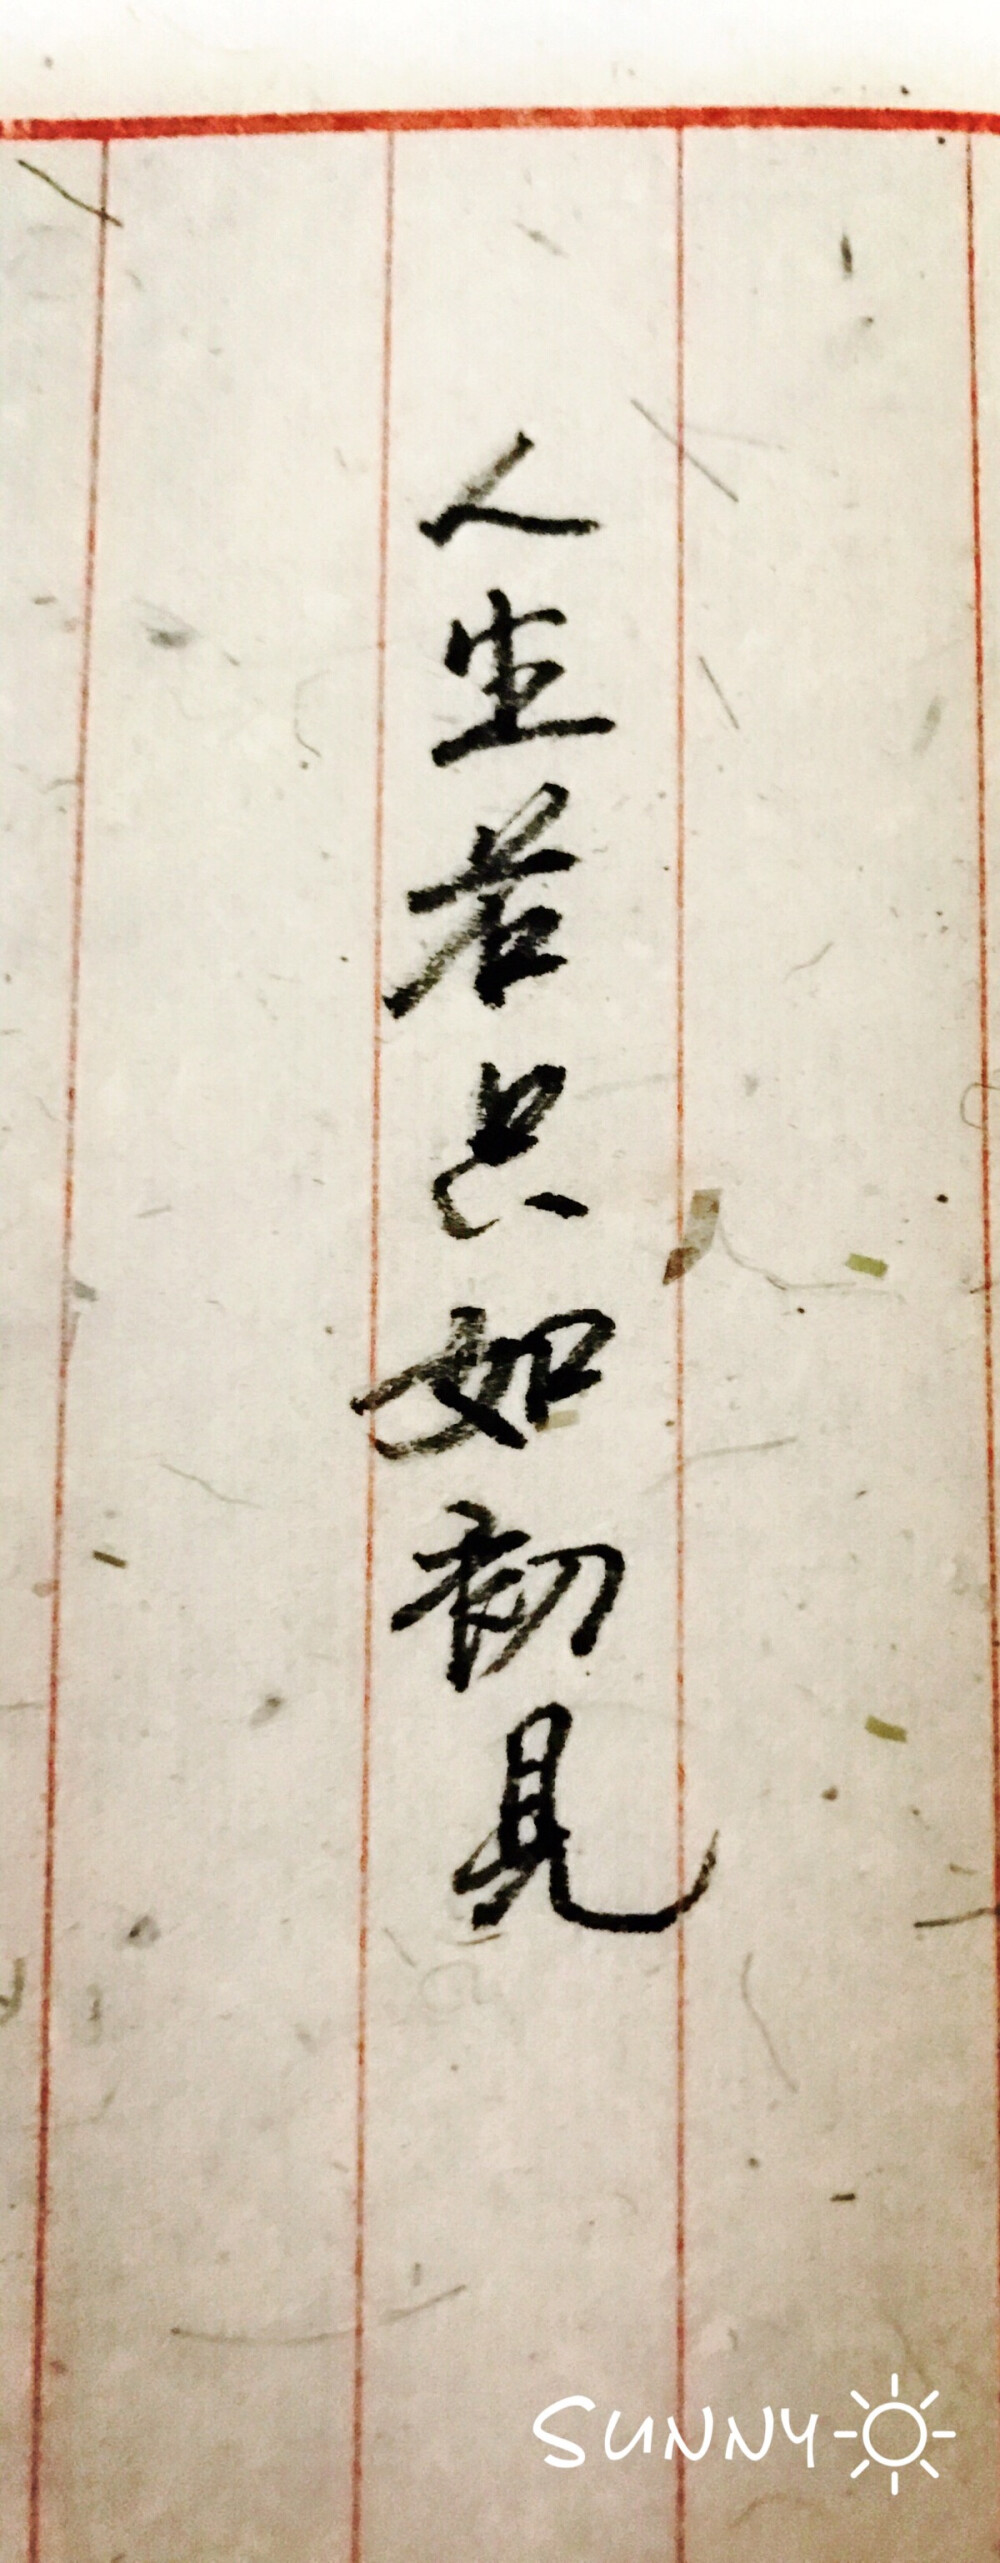 人生若只如初見
SUNNY